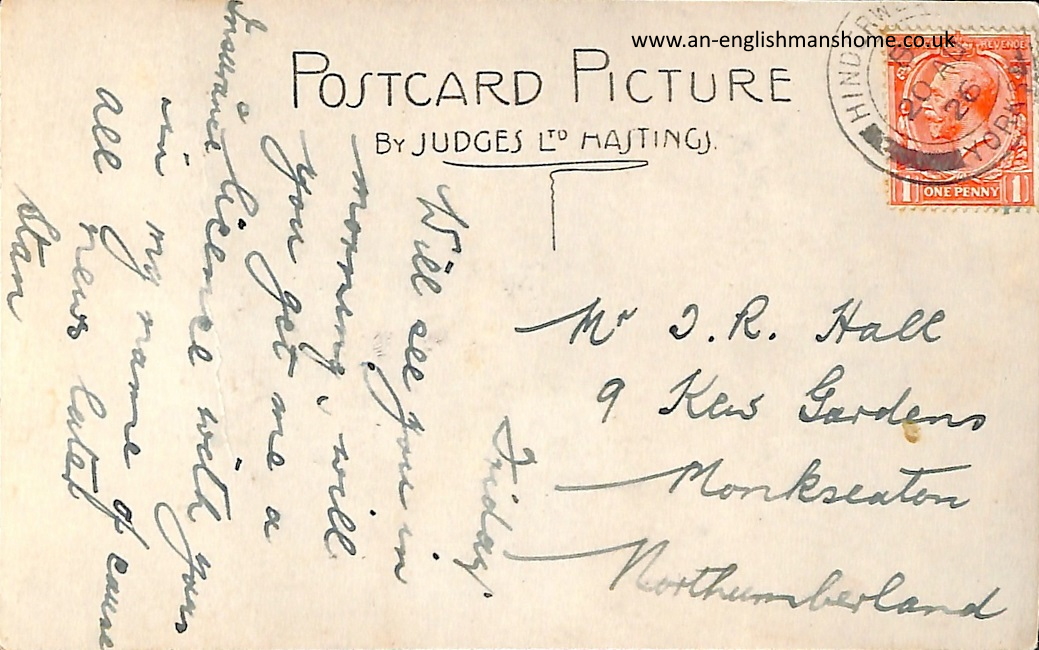 www.an-englishmanshome.co.uk
POSTCARD PICTURE
BY JUDGES LTD HASTINGS.
HINDERWE
20 AU
26
YORK
REVENUE
1 ONE PENNY 1
Mr J. R. Hall
9 Kew Gardens
Monkseaton
Northumberland
Friday.
Will see you in
morning, will
you get me a
Insurance licence with yours
in my name of cause
all news later
Stan